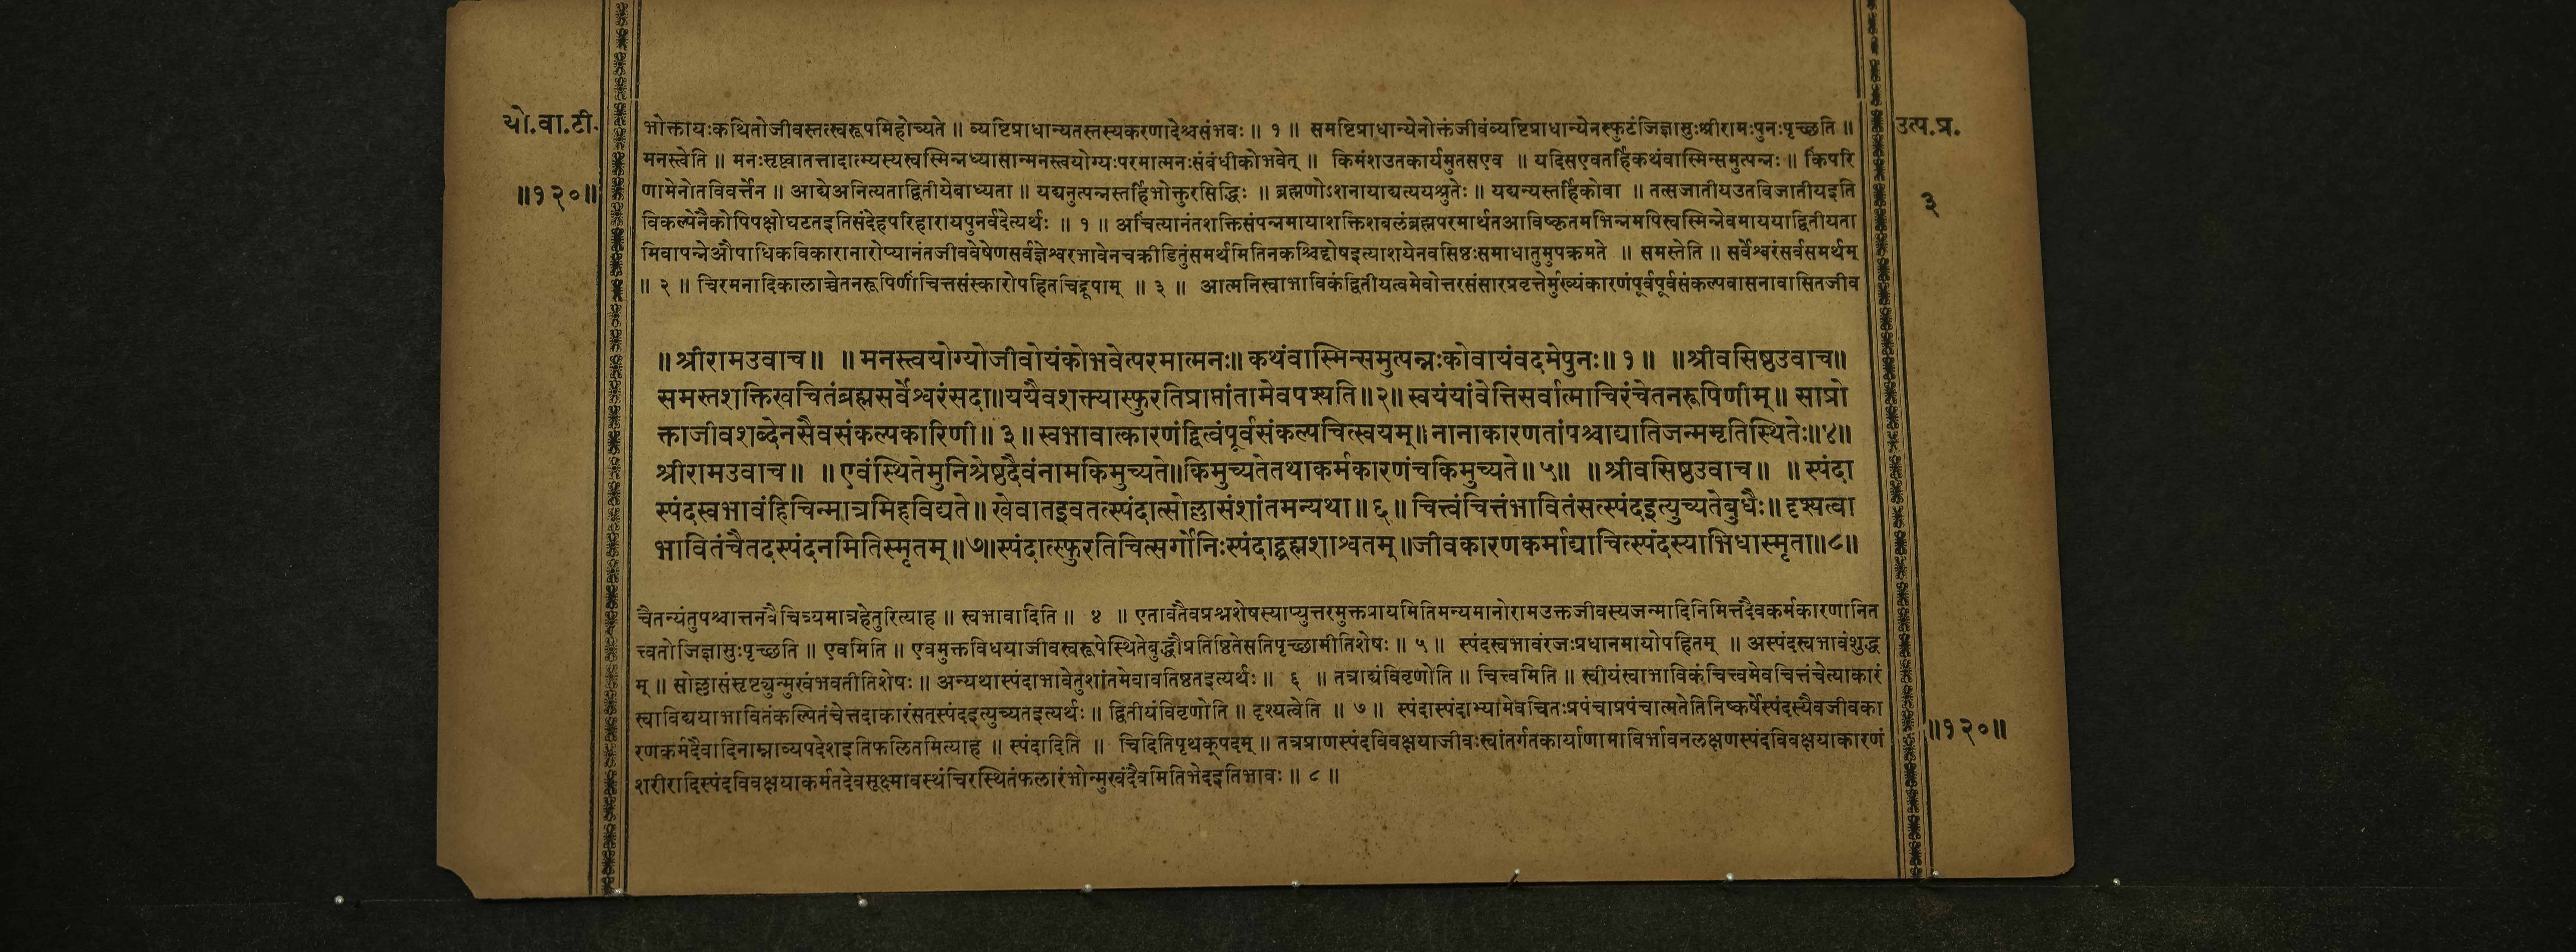 यो.वा.टी.
॥१२०॥
उत्प.प्र.
३
भोक्तायःकथितोजीवस्तत्स्वरूपमिहोच्यते ॥ व्यष्टिप्राधान्यतस्तस्यकरणादेश्चसंभवः ॥ १ ॥ समष्टिप्राधान्येनोक्तंजीवंव्यष्टिप्राधान्येनस्फुटंजिज्ञासुःश्रीरामःपुनःपृच्छति ॥
मनस्त्वेति ॥ मनःसृष्ट्वातत्तादात्म्यस्यस्वस्मिन्नध्यासान्मनस्त्वयोग्यःपरमात्मनःसंबंधीकोभवेत् ॥ किमंशउतकार्यमुतसएव ॥ यदिसएवतर्हिकथंवास्मिन्समुत्पन्नः ॥ किंपरि
णामेनोतविवर्त्तेन ॥ आद्येअनित्यताद्वितीयेबाध्यता ॥ यद्यनुत्पन्नस्तर्हिभोक्तुरसिद्धिः ॥ ब्रह्मणोऽशनायाद्यत्ययश्रुतेः ॥ यद्यन्यस्तर्हिकोवा ॥ तत्सजातीयउतविजातीयइति
विकल्पेनैकोपिपक्षोघटतइतिसंदेहपरिहारायपुनर्वदेत्यर्थः ॥ १ ॥ अचिंत्यानंतशक्तिसंपन्नमायाशक्तिशबलंब्रह्मपरमार्थतआविष्कृतमभिन्नमपिस्वस्मिन्नेवमाययाद्वितीयता
मिवापन्नेऔपाधिकविकारानारोप्यानंतजीववेषेणसर्वज्ञेश्वरभावेनचक्रीडितुंसमर्थमितिनकश्चिद्दोषइत्याशयेनवसिष्ठःसमाधातुमुपक्रमते ॥ समस्तेति ॥ सर्वेश्वरंसर्वसमर्थम्
॥ २ ॥ चिरमनादिकालाच्चेतनरूपिणींचित्तसंस्कारोपहितचिद्रूपाम् ॥ ३ ॥ आत्मनिस्वाभाविकंद्वितीयत्वमेवोत्तरसंसारप्रवृत्तेर्मुख्यंकारणंपूर्वपूर्वसंकल्पवासनावासितजीव
॥ श्रीरामउवाच ॥ ॥ मनस्त्वयोग्योजीवोयंकोभवेत्परमात्मनः॥ कथंवास्मिन्समुत्पन्नःकोवायंवदमेपुनः॥ १ ॥ ॥श्रीवसिष्ठउवाच॥
समस्तशक्तिखचितंब्रह्मसर्वेश्वरंसदा॥ययैवशक्त्यास्फुरतिप्राप्तांतामेवपश्यति॥२॥ स्वयंयांवेत्तिसर्वात्माचिरंचेतनरूपिणीम्॥ साप्रो
क्ताजीवशब्देनसैवसंकल्पकारिणी॥ ३॥ स्वभावात्कारणंद्वित्वंपूर्वसंकल्पचित्स्वयम्॥नानाकारणतांपश्चाद्यातिजन्ममृतिस्थितेः॥४॥
श्रीरामउवाच॥ ॥ एवंस्थितेमुनिश्रेष्ठदैवंनामकिमुच्यते॥किमुच्यतेतथाकर्मकारणंचकिमुच्यते॥ ५॥ ॥श्रीवसिष्ठउवाच॥ ॥ स्पंदा
स्पंदस्वभावंहिचिन्मात्रमिहविद्यते॥ खेवातइवतत्स्पंदात्सोल्लासंशांतमन्यथा॥ ६॥ चित्त्वंचित्तंभावितंसत्स्पंदइत्युच्यतेबुधैः॥ दृश्यत्वा
भावितंचैतदस्पंदनमितिस्मृतम्॥७॥स्पंदात्स्फुरतिचित्सर्गोनिःस्पंदाद्ब्रह्मशाश्वतम्॥जीवकारणकर्माद्याचित्स्पंदस्याभिधास्मृता॥८॥
चैतन्यंतुपश्चात्तनवैचित्र्यमात्रहेतुरित्याह ॥ स्वभावादिति ॥ ४ ॥ एतावतैवप्रश्नशेषस्याप्युत्तरमुक्तप्रायमितिमन्यमानोरामउक्तजीवस्यजन्मादिनिमित्तदैवकर्मकारणानित
त्त्वतोजिज्ञासुःपृच्छति ॥ एवमिति ॥ एवमुक्तविधयाजीवस्वरूपेस्थितेबुद्धौप्रतिष्ठितेसतिपृच्छामीतिशेषः ॥ ५ ॥ स्पंदस्वभावंरजःप्रधानमायोपहितम् ॥ अस्पंदस्वभावंशुद्ध
म् ॥ सोल्लासंसृष्ट्युन्मुखंभवतीतिशेषः ॥ अन्यथास्पंदाभावेतुशांतमेवावतिष्ठतइत्यर्थः ॥ ६ ॥ तत्राद्यंविवृणोति ॥ चित्त्वमिति ॥ स्वीयंस्वाभाविकंचित्त्वमेवचित्तंचेत्याकारं
स्वाविद्ययाभावितंकल्पितंचेत्तदाकारंसत्स्पंदइत्युच्यतइत्यर्थः ॥ द्वितीयंविवृणोति ॥ दृश्यत्वेति ॥ ७ ॥ स्पंदास्पंदाभ्यामेवचितःप्रपंचाप्रपंचात्मतेतिनिष्कर्षेस्पंदस्यैवजीवका
रणकर्मदैवादिनाम्नाव्यपदेशइतिफलितमित्याह ॥ स्पंदादिति ॥ चिदितिपृथक्पदम् ॥ तत्रप्राणस्पंदविवक्षयाजीवःस्वांतर्गतकार्याणामाविर्भावनलक्षणस्पंदविवक्षयाकारणं
शरीरादिस्पंदविवक्षयाकर्मतदेवसूक्ष्मावस्थंचिरस्थितंफलारंभोन्मुखंदैवमितिभेदइतिभावः ॥ ८ ॥
॥१२०॥